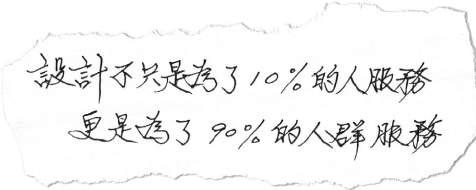 設計不只是為了10%的人服務
更是為了90%的人群服務